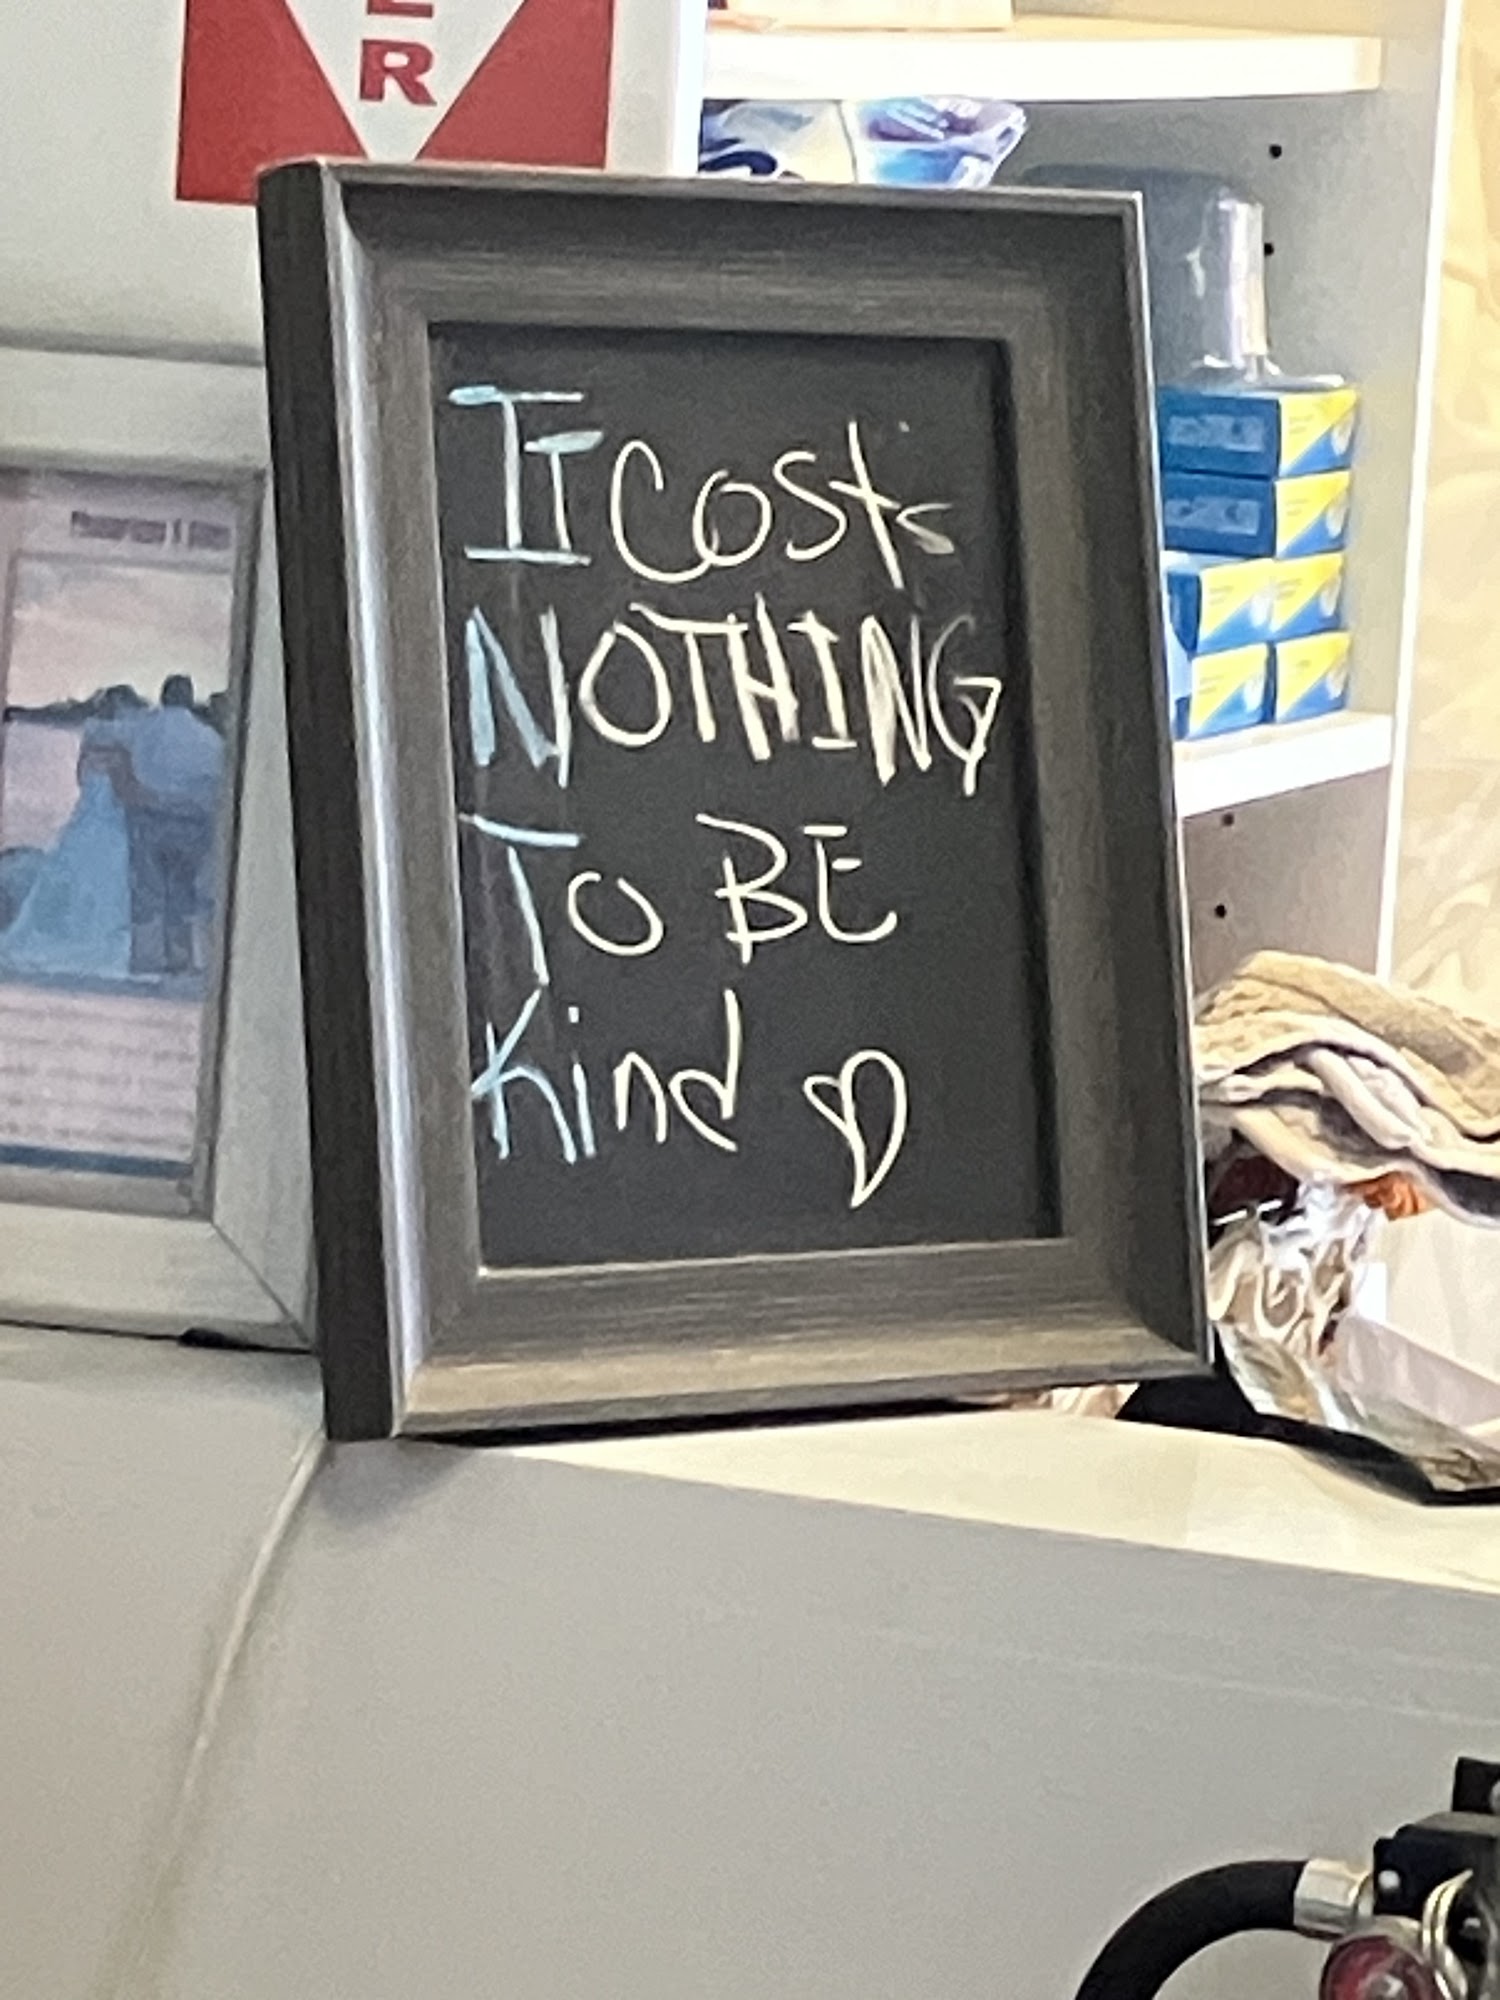 ER
IT Costs
NOTHING
To BE
Kind